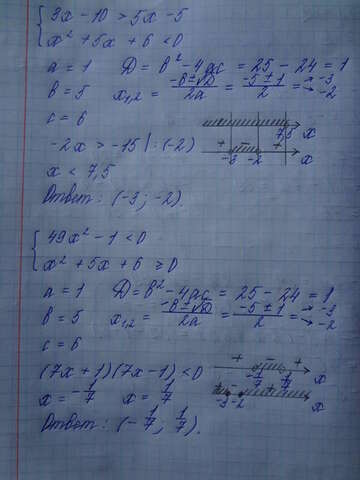 3x - 10 > 5x - 5
x² + 5x + 6 < 0
a = 1 D = b² - 4ac = 25 - 24 = 1
b = 5 x₁,₂ = (-b ± √D)/2a = (-5 ± 1)/2 = → -3 → -2
c = 6
-2x > -15 | : (-2)
7,5 x
x < 7,5
+ - +
-3 -2 x
Ответ: (-3; -2).
49x² - 1 < 0
x² + 5x + 6 ≥ 0
a = 1 D = b² - 4ac = 25 - 24 = 1
b = 5 x₁,₂ = (-b ± √D)/2a = (-5 ± 1)/2 = → -3 → -2
c = 6
(7x + 1)(7x - 1) < 0
+ - +
-1/7 1/7 x
x = -1/7 x = 1/7
+ - +
-3 -2 x
Ответ: (-1/7; 1/7).